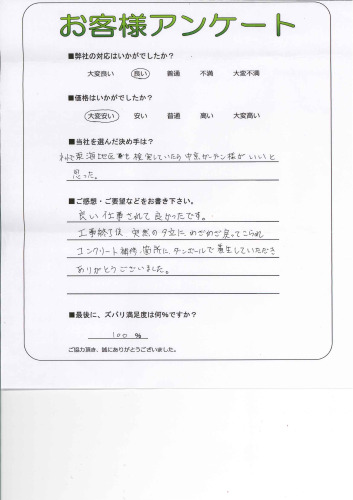 お客様アンケート
■弊社の対応はいかがでしたか?
大変良い 良い 普通 不満 大変不満
■価格はいかがでしたか?
大変安い 安い 普通 高い 大変高い
■当社を選んだ決め手は?
東海地区 検索していたの中京ガーデン様がいいと
思った。
■ご感想・ご要望などをお書き下さい。
良い仕事されて良かったです。
工事終了後、突然の夕立に、わざわざ戻ってこられ
コンクリート補修箇所に、ダンボールで養生していただき
ありがとうございました。
■最後に、ズバリ満足度は何%ですか?
100 %
ご協力頂き、誠にありがとうございました。